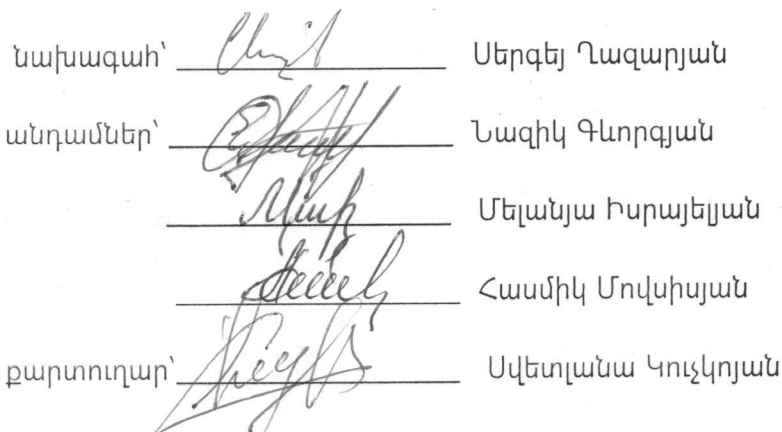 նախագահ՝ Սերգեյ Ղազարյան
անդամներ՝ Նազիկ Գևորգյան
Մելանյա Իսրայելյան
Հասմիկ Մովսիսյան
քարտուղար՝ Սվետլանա Կուչկոյան